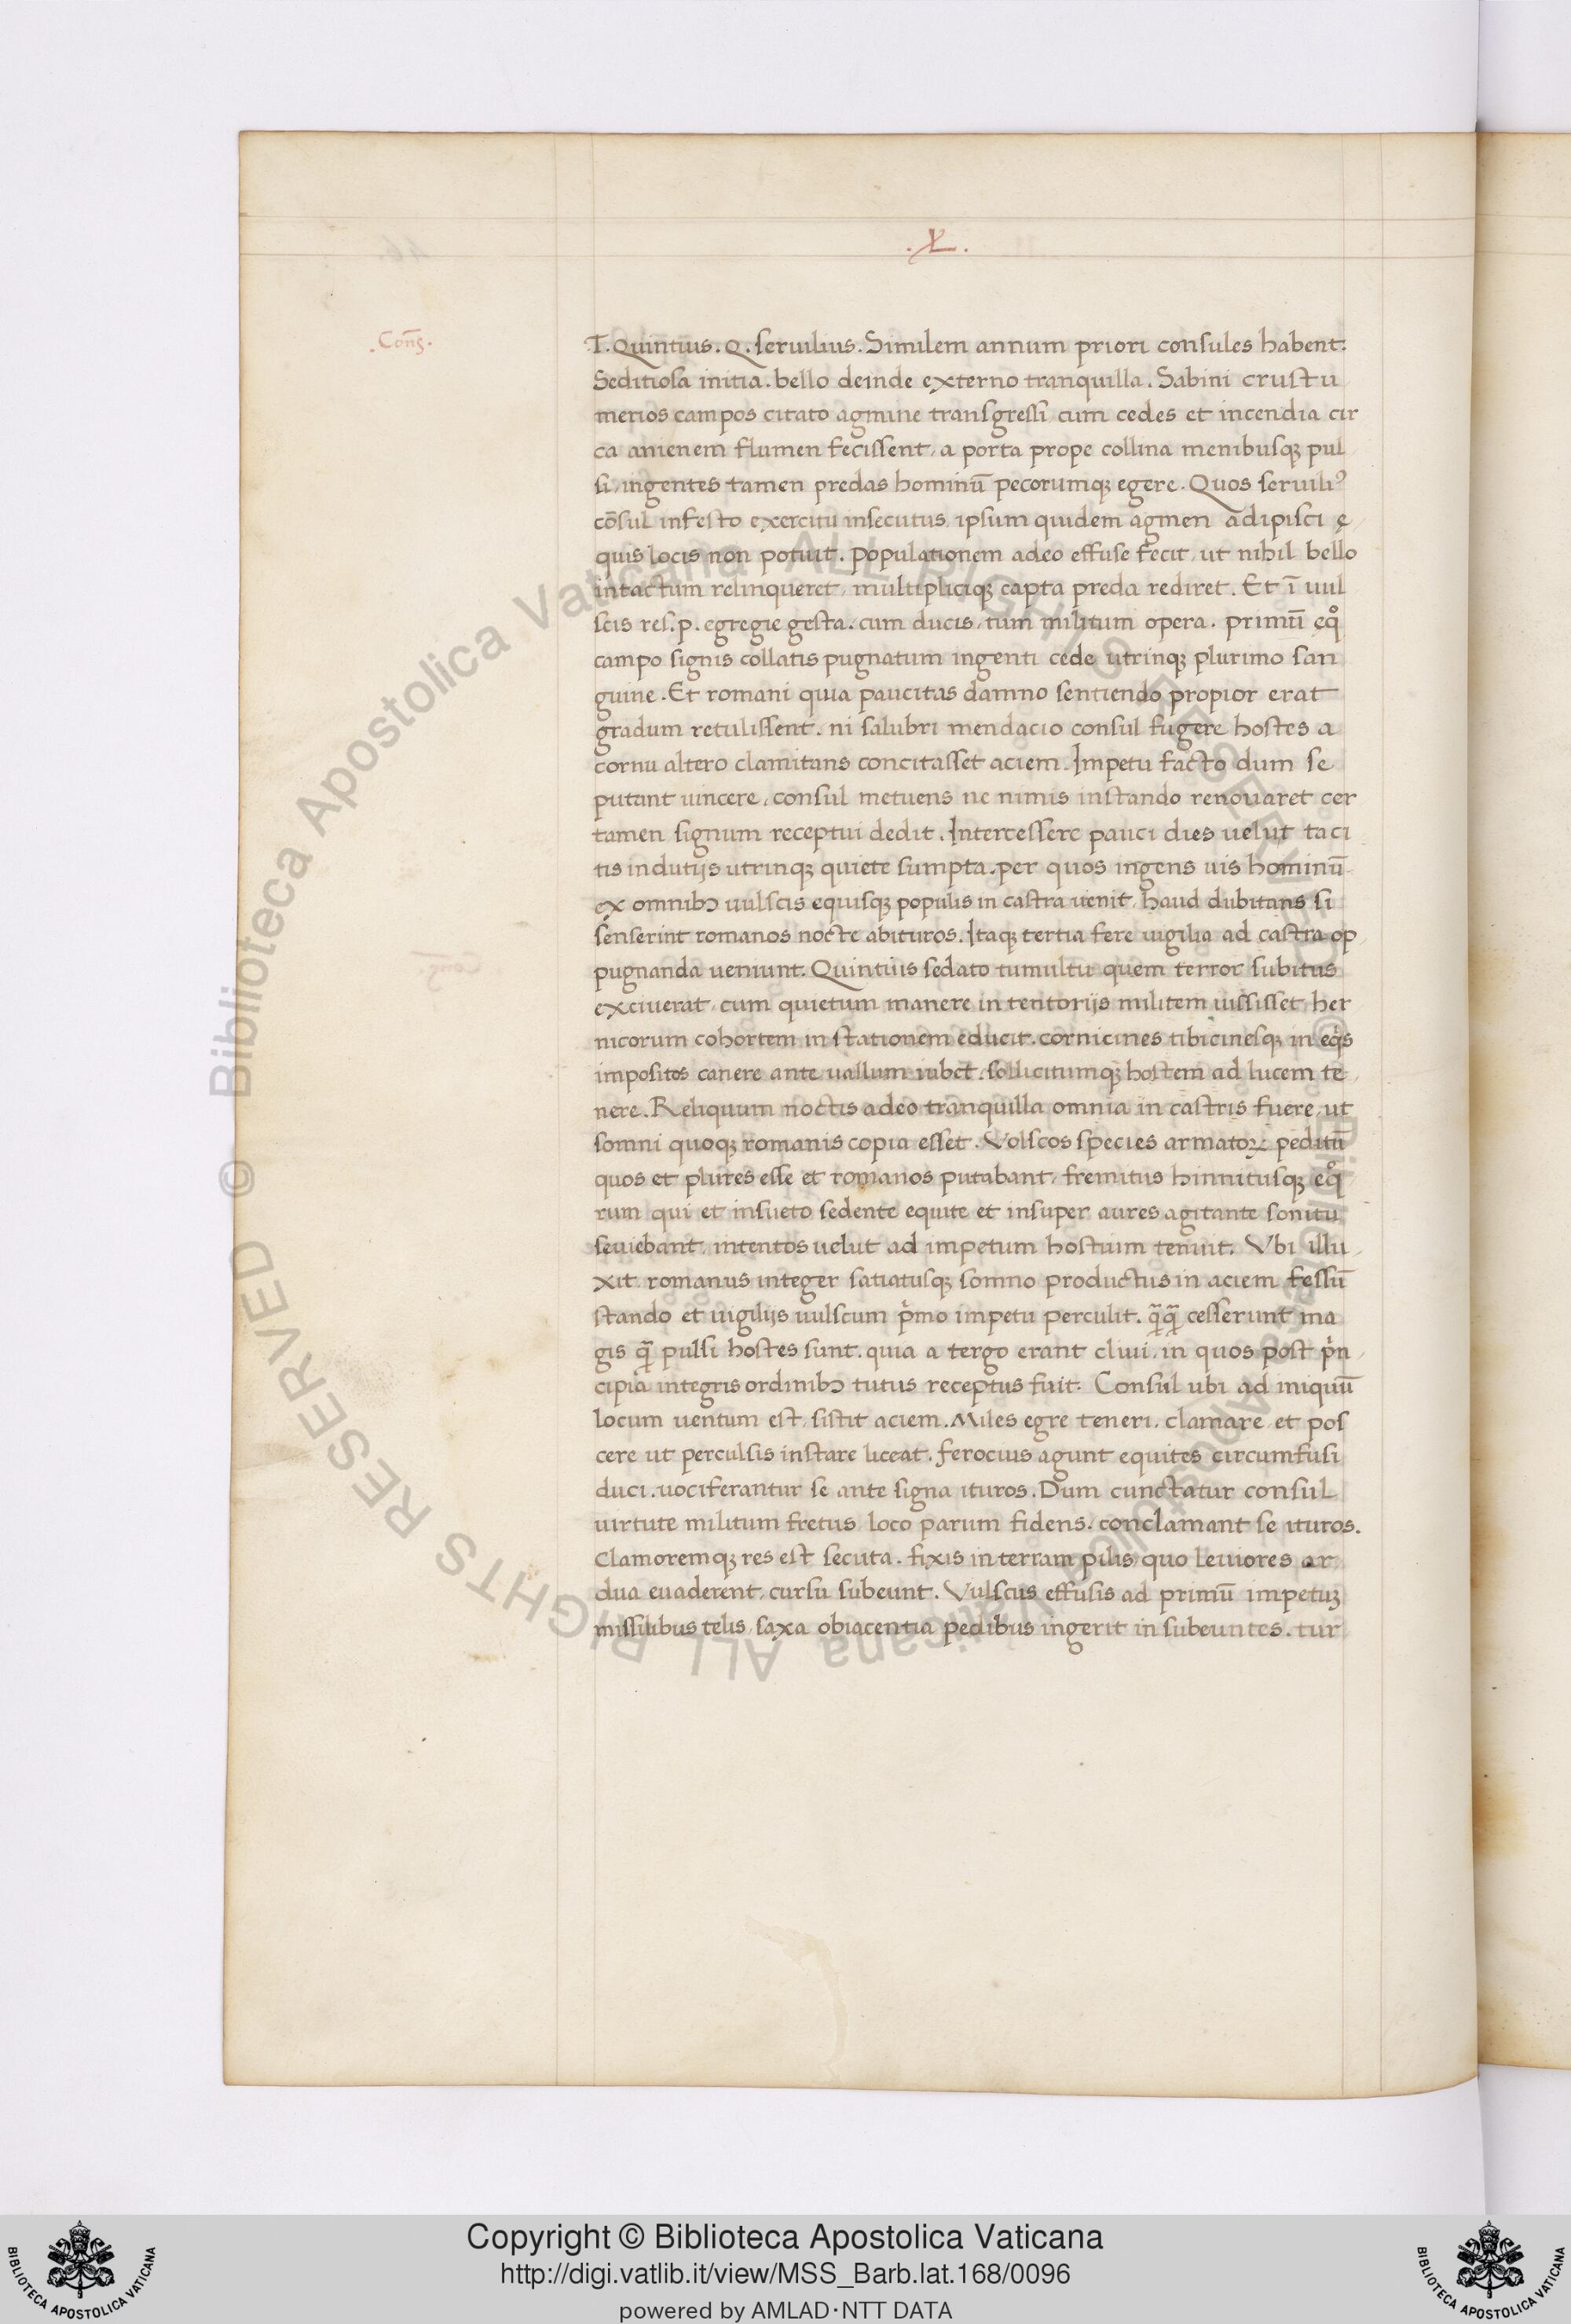 .X.
.Cons̄.
T. Quintius. Q. seruilius. Similem annum priori consules habent.
Seditiosa initia. bello deinde externo tranquilla. Sabini crustu
merios campos citato agmine transgressi cum cedes et incendia cir
ca anienem flumen fecissent, a porta prope collina menibusqꝫ pul
si, ingentes tamen predas hominū pecorumqꝫ egere. Quos seruiliꝰ
cōsul infesto exercitu insecutus, ipsum quidem agmen adipisci ę
quis locis non potuit. populationem adeo effuse fecit, ut nihil bello
intactum relinqueret, multipliciqꝫ capta preda rediret. Et ī uul
scis res. p. egregie gesta. cum ducis, tum militum opera. primū ęqͦ
campo signis collatis pugnatum ingenti cede utrinqꝫ plurimo san
guine. Et romani quia paucitas damno sentiendo propior erat
gradum retulissent. ni salubri mendacio consul fugere hostes a
cornu altero clamitans concitasset aciem. Impetu facto dum se
putant uincere, consul metuens ne nimis instando renouaret cer
tamen signum receptui dedit. Intercessere pauci dies uelut taci
tis indutijs utrinqꝫ quiete sumpta. per quos ingens uis hominū
ex omnibꝫ uulscis equisqꝫ populis in castra uenit, haud dubitans si
senserint romanos nocte abituros. Itaqꝫ tertia fere uigilia ad castra op
pugnanda ueniunt. Quintius sedato tumultu quem terror subitus
exciuerat, cum quietum manere in tentorijs militem iussisset, her
nicorum cohortem in stationem educit. cornicines tibicinesqꝫ in eq̇s
impositos canere ante uallum iubet, sollicitumqꝫ hostem ad lucem te
nere. Reliquum noctis adeo tranquilla omnia in castris fuere, ut
somni quoqꝫ romanis copia esset. Volscos species armatoꝝ peditū
quos et plures esse et romanos putabant, fremitus hinnitusqꝫ eqͦ
rum qui et insueto sedente equite et insuper aures agitante sonitu
seuiebant, intentos uelut ad impetum hostium tenuit. Vbi illu
xit romanus integer satiatusqꝫ somno productus in aciem fessū
stando et uigilijs uulscum pͥmo impetu perculit. qͣ̄qͣ̄ cesserunt ma
gis qͣ̄ pulsi hostes sunt. quia a tergo erant cliui, in quos post pͥn
cipia integris ordinibꝫ tutus receptus fuit. Consul ubi ad iniquū
locum uentum est, sistit aciem. Miles egre teneri. clamare, et pos
cere ut perculsis instare liceat. ferocius agunt equites circumfusi
duci. uociferantur se ante signa ituros. Dum cunctatur consul
uirtute militum fretus, loco parum fidens. conclamant se ituros.
Clamoremqꝫ res est secuta. fixis in terram pilis quo leuiores ar
dua euaderent, cursu subeunt. Vulscus effusis ad primū impetuꝫ
missilibus telis, saxa obiacentia pedibus ingerit in subeuntes. tur
© Biblioteca Apostolica Vaticana ALL RIGHTS RESERVED
© Biblioteca Apostolica Vaticana ALL RIGHTS RESERVED
Copyright © Biblioteca Apostolica Vaticana
http://digi.vatlib.it/view/MSS_Barb.lat.168/0096
powered by AMLAD·NTT DATA
BIBLIOTECA APOSTOLICA VATICANA
BIBLIOTECA APOSTOLICA VATICANA